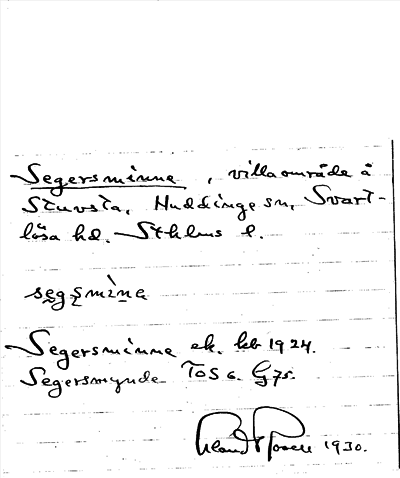 Segersminne, villaområde å
Stuvsta, Huddinge sn, Svart-
lösa hd. Sthlms l.
segsmine
Segersminne ek. kb 1924.
Segersmynde TOS 6. G 75.
1930.